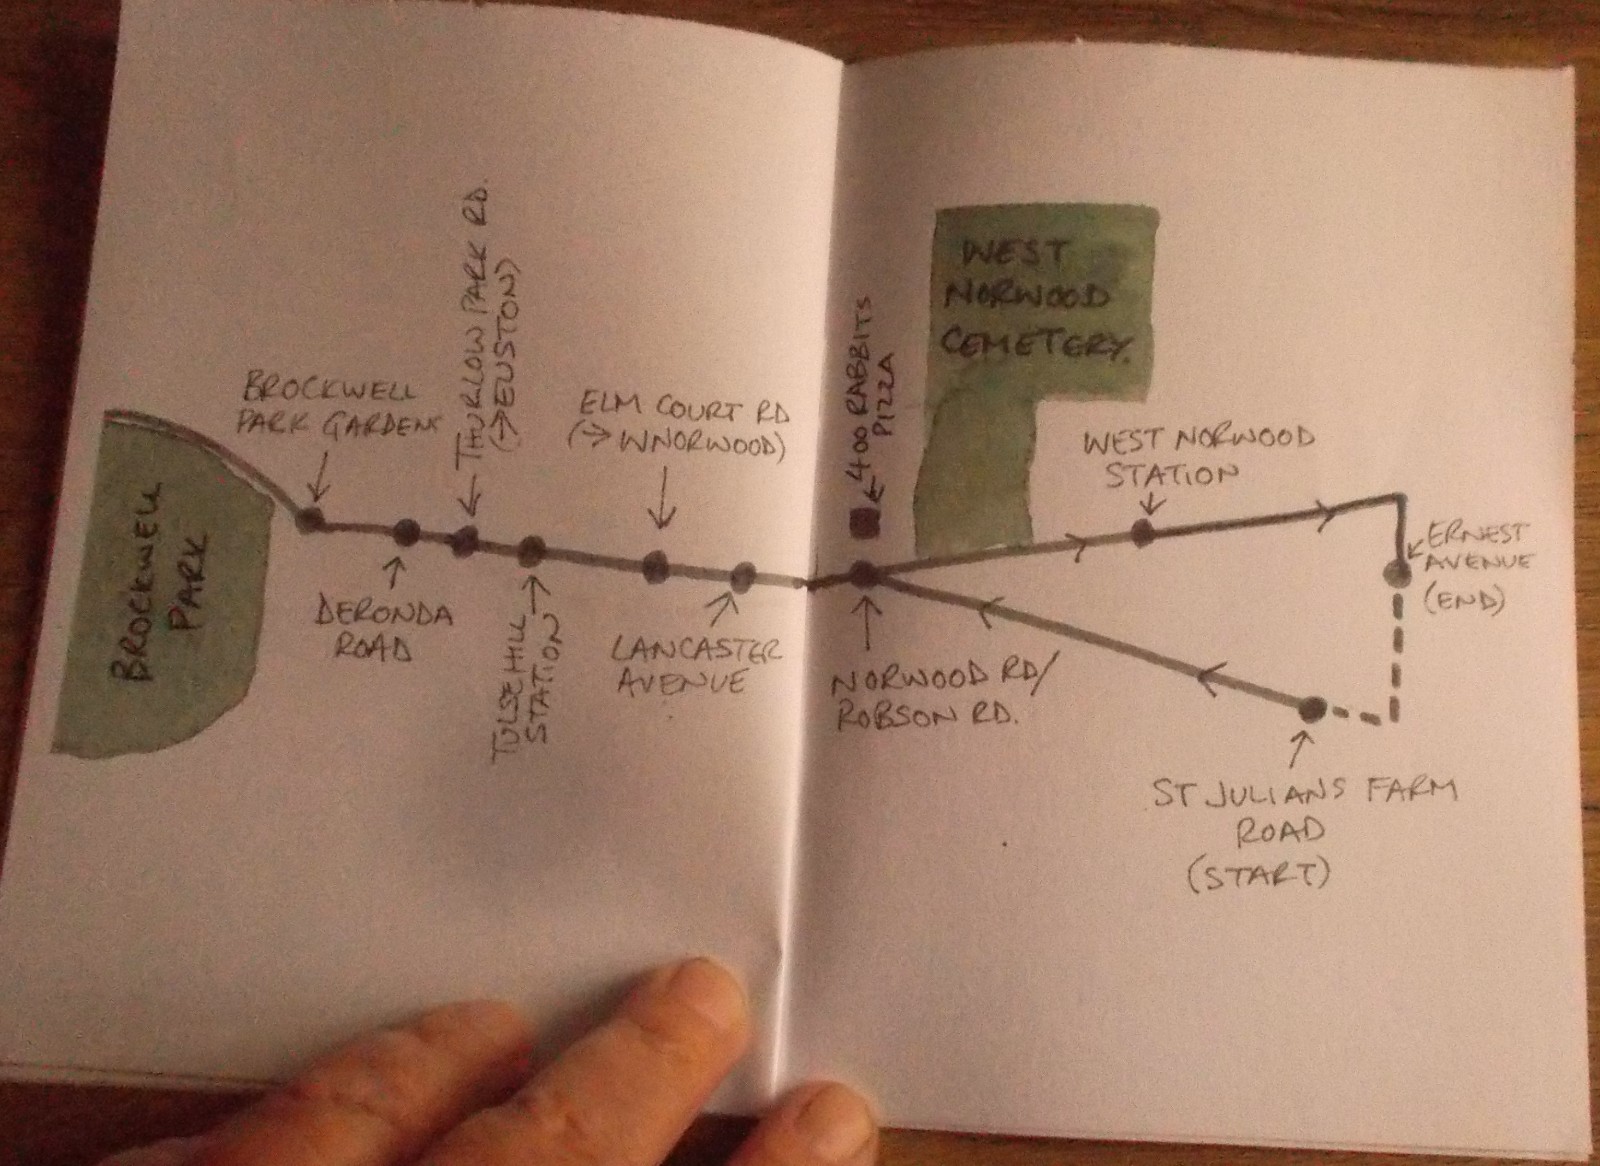 BROCKWELL
PARK GARDENS
THURLOW PARK RD.
(→EUSTON)
ELM COURT RD
(→ W NORWOOD)
BROCKWELL
PARK
DERONDA
ROAD
TULSE HILL
STATION
LANCASTER
AVENUE
400 RABBITS
PIZZA
WEST
NORWOOD
CEMETERY.
WEST NORWOOD
STATION
ERNEST
AVENUE
(END)
NORWOOD RD/
ROBSON RD.
ST JULIANS FARM
ROAD
(START)